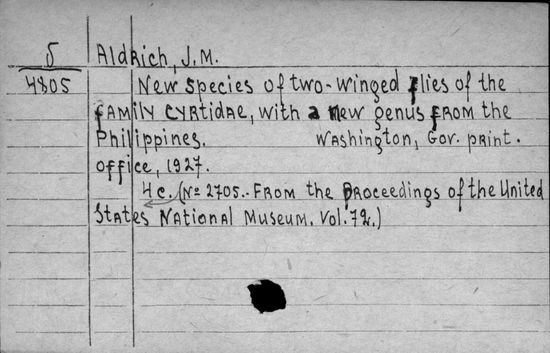 δ Aldrich, J.M.
4805 New species of two-winged flies of the
family Cyrtidae, with a new genus from the
Philippines. Washington, Gov. print.
office, 1927.
4 c. (№ 2705.- From the Proceedings of the United
States National Museum. Vol. 72.)